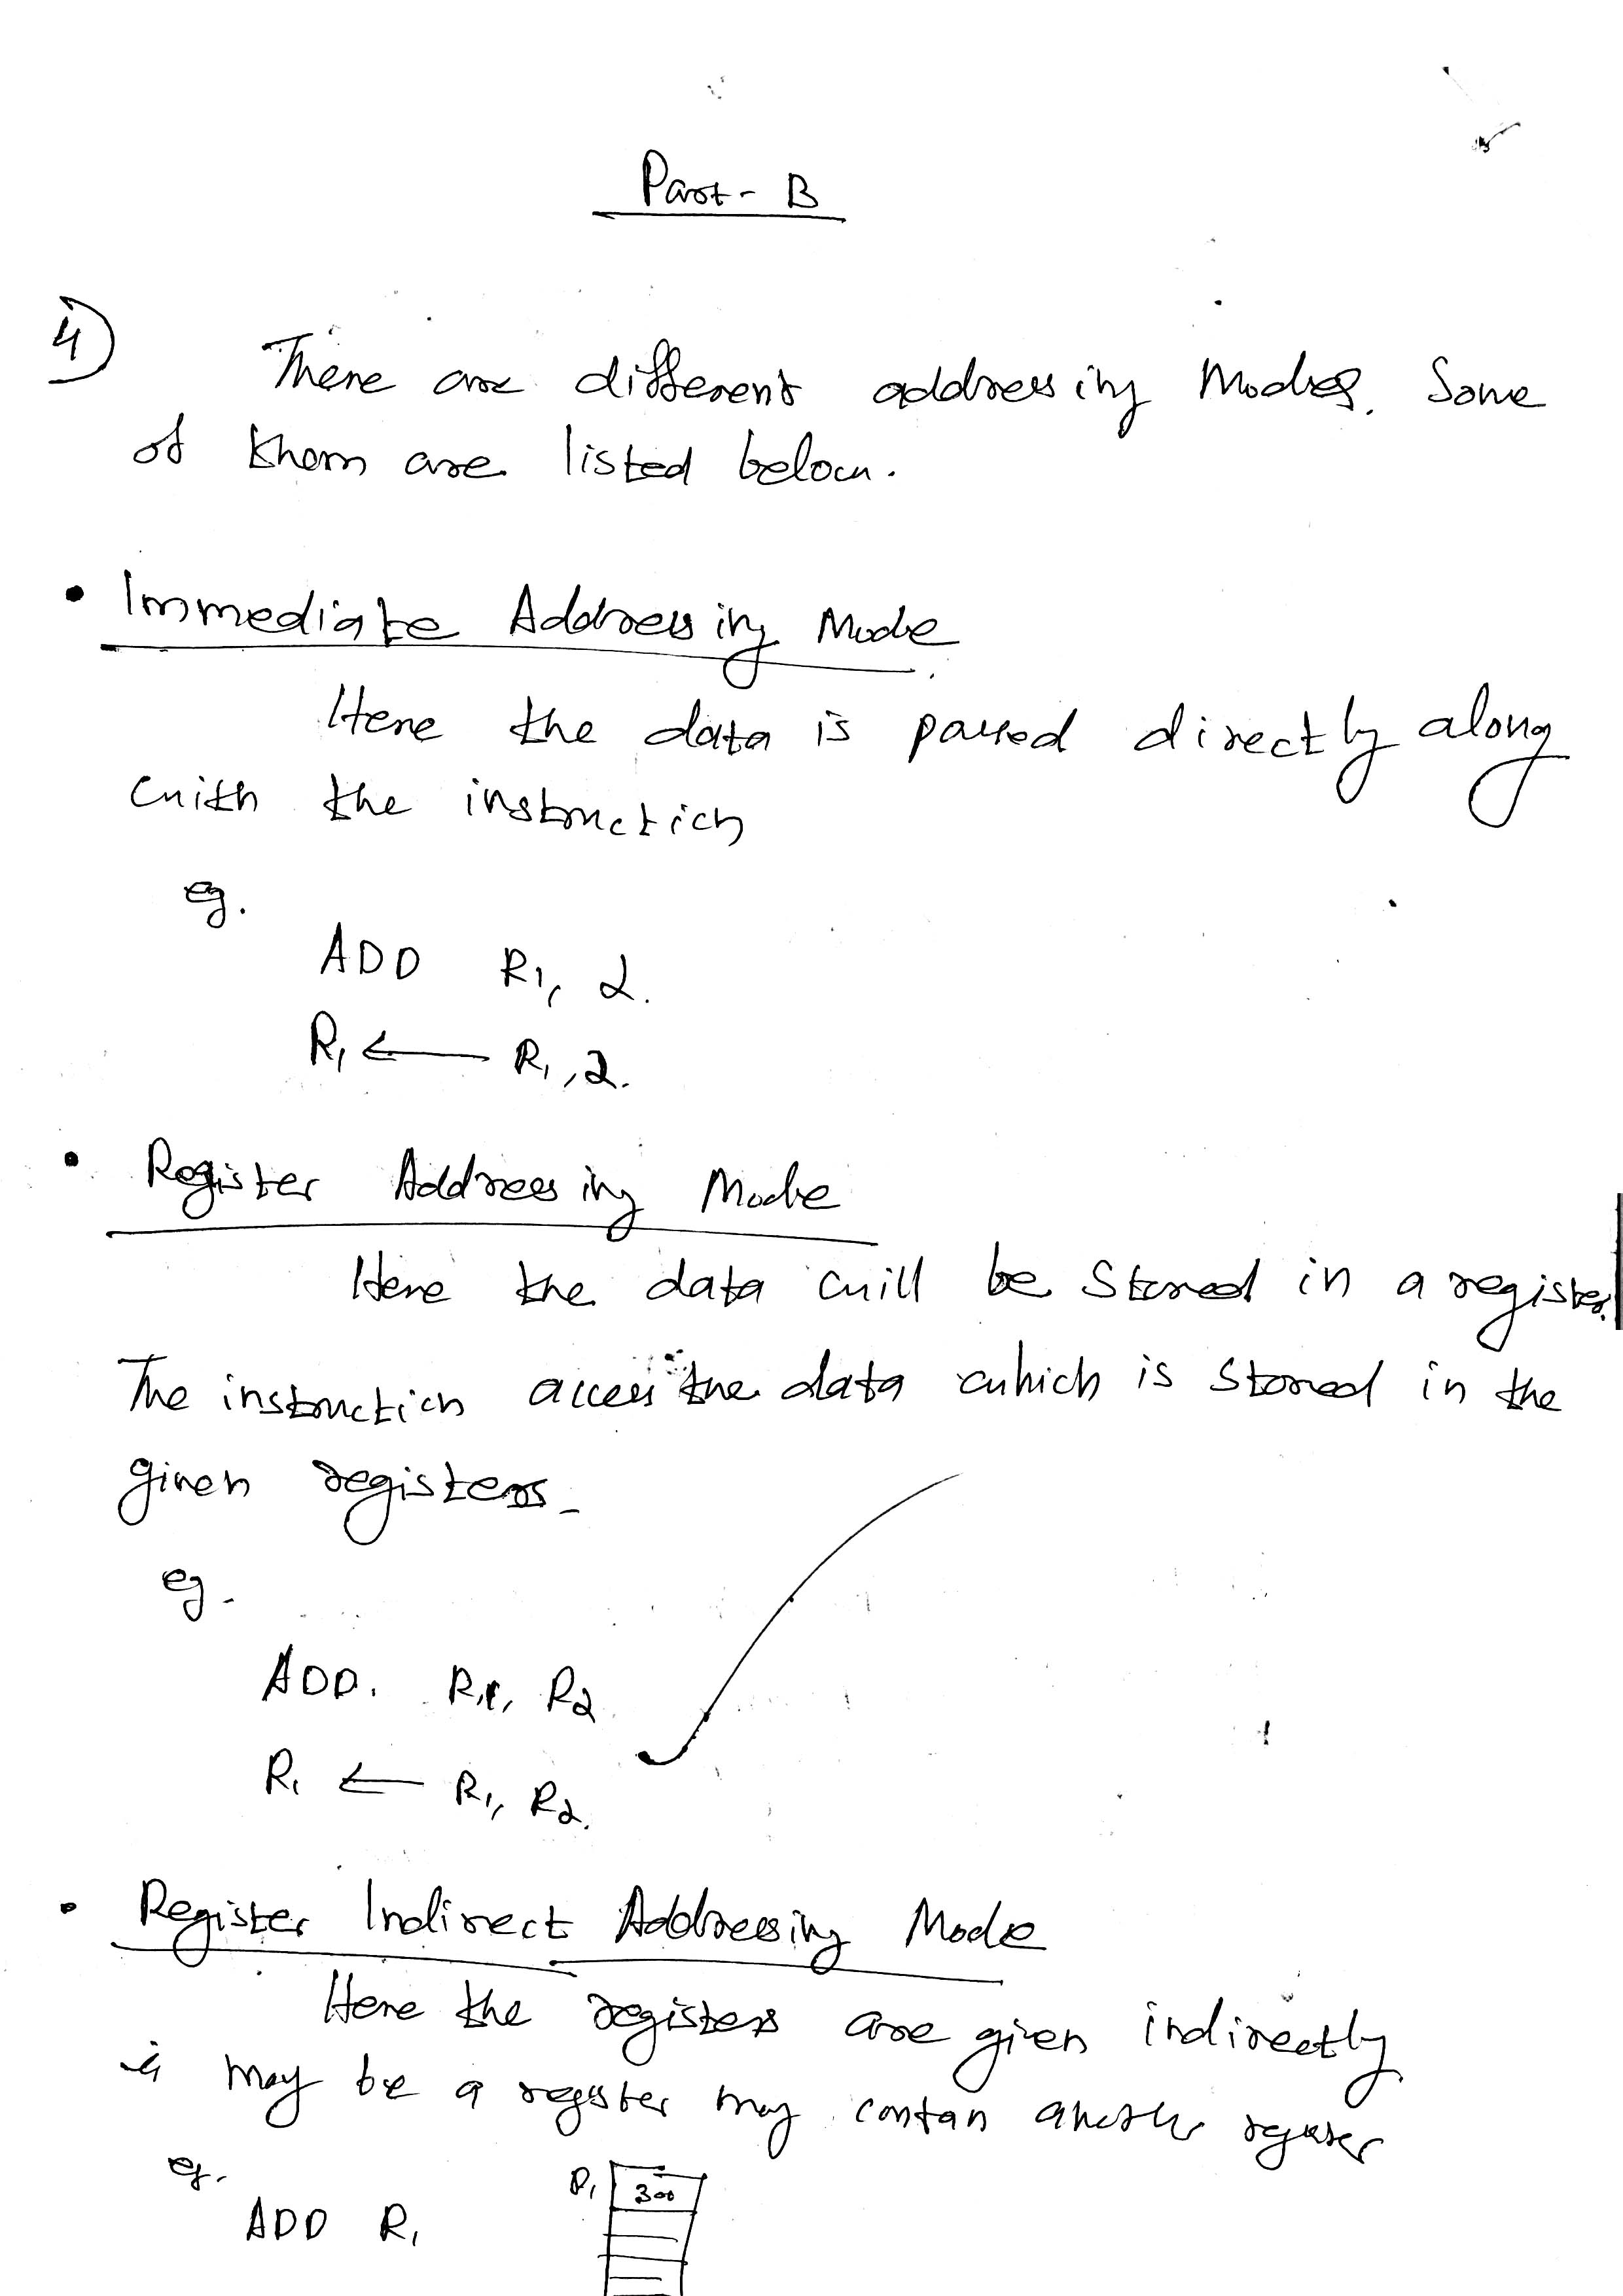 Part - B
4)
There are different addressing Modes. Some
of them are listed below.
• Immediate Addressing Mode
Here the data is passed directly along
with the instruction
eg.
ADD R1, 2.
R1 ← R1, 2.
• Register Addressing Mode
Here the data will be stored in a register.
The instruction access the data which is stored in the
given registers.
eg.
ADD. R1, R2
R1 ← R1, R2.
• Register Indirect Addressing Mode
Here the registers are given indirectly
ie may be a register may contan another register
eg.
ADD R1
R1 300